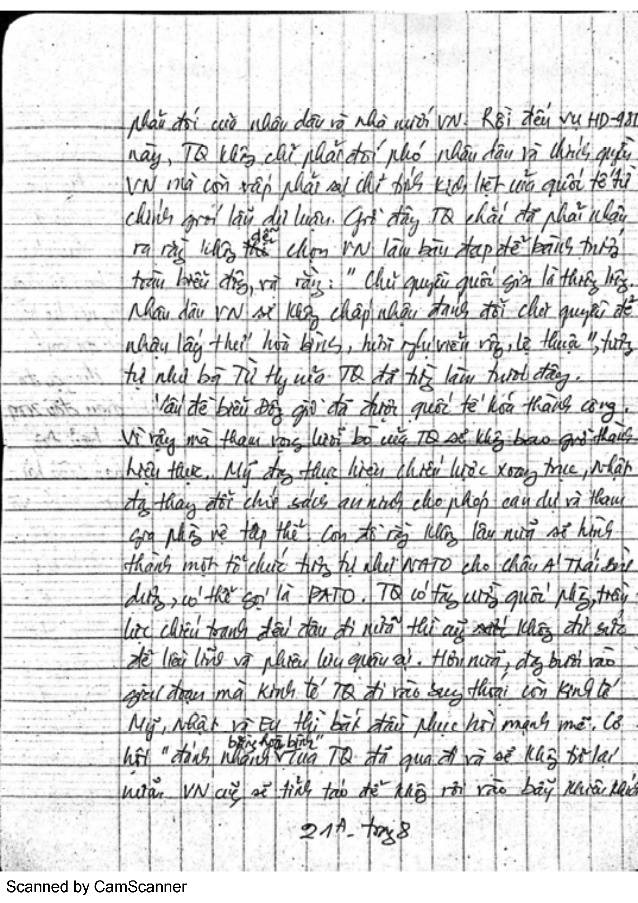 phản đối của nhân dân và nhà nước VN. Rồi đến vụ HD-981
này, TQ không chỉ phải đối phó nhân dân và chính quyền
VN mà còn vấp phải sự chỉ trích kịch liệt của quốc tế từ
chính giới lẫn dư luận. Giờ đây TQ chắc đã phải nhận
ra rằng không dễ chọn VN làm bàn đạp để bành trướng
toàn biển đông, và rằng: "Chủ quyền quốc gia là thiêng liêng.
Nhân dân VN sẽ không chấp nhận đánh đổi chủ quyền để
nhận lấy thứ hoà bình, hữu nghị viển vông, lệ thuộc", tương
tự như bà Từ Hy của TQ đã từng làm trước đây.
Vấn đề biển Đông giờ đã được quốc tế hóa thành công.
Vì vậy mà tham vọng lưỡi bò của TQ sẽ không bao giờ thành
hiện thực. Mỹ đang thực hiện chiến lược xoay trục, Nhật
đang thay đổi chính sách an ninh cho phép can dự và tham
gia phòng vệ tập thể. Còn đó rằng không lâu nữa sẽ hình
thành một tổ chức tương tự như NATO cho châu Á Thái Bình
dương, có thể gọi là PATO. TQ có tăng cường quốc phòng,
lực chiến tranh đến đâu đi nữa thì cũng không đủ sức
để liều lĩnh và phiêu lưu quân sự. Hơn nữa, đang bước vào
giai đoạn mà kinh tế TQ đi vào suy thoái còn kinh tế
Mỹ, Nhật và EU thì bắt đầu phục hồi mạnh mẽ. Cơ
hội "đánh nhanh bằng hoà bình" của TQ đã qua đi và sẽ không trở lại
nữa. VN cũng sẽ tỉnh táo để không rơi vào bẫy khiêu khích
21A - trang 8
Scanned by CamScanner